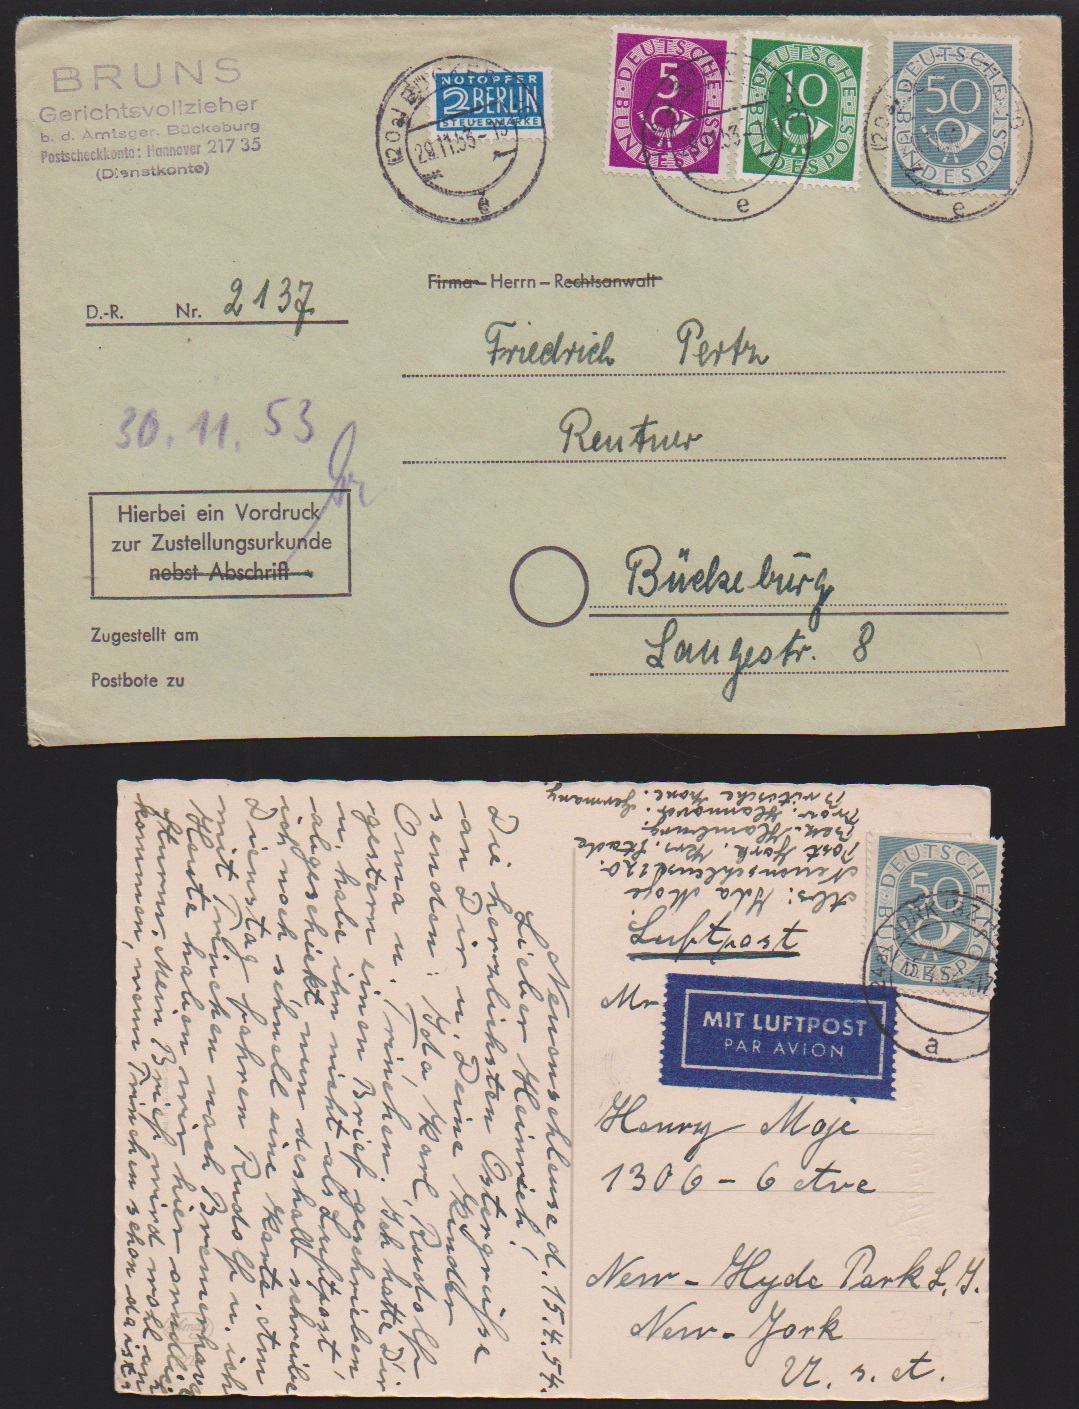 BRUNS
Gerichtsvollzieher
b. d. Amtsger. Bückeburg
Postscheckkonto: Hannover 217 35
(Dienstkonto)
NOTOPFER
2 BERLIN
STEUERMARKE
29.11.53
e
DEUTSCHE BUNDESPOST
5
e
DEUTSCHE BUNDESPOST
10
DEUTSCHE BUNDESPOST
50
e
D.-R. Nr. 2137
Firma - Herrn - Rechtsanwalt
Friedrich Pertz
Rentner
Bückeburg
Langestr. 8
30.11.53
Hierbei ein Vordruck
zur Zustellungsurkunde
nebst Abschrift
Zugestellt am
Postbote zu
Neuenschleuse d. 15.4.54.
Lieber Heinrich!
Die herzlichsten Ostergrüße
an Dir u. Deine Kinder
senden: Ida, Karl, Rudolf
Oma u. Trinchen. Ich hatte Dir
gestern einen Brief geschrieben
u. habe ihn nicht als Luftpost
abgeschickt, nun deshalb schreibe
ich noch schnell eine Karte. Am
Dienstag fahren Rudolf u. ich
mit Trinchen nach Bremerhav
Heute haben wir hier
Sturm. Mein Brief wird wohl an
kommen, wenn Trinchen schon da ist.
Abs: Ida Moje
Neuenschleuse 120.
Post York, Krs. Stade
Bez. Hamburg.
Prov. Hannover. Germany
Britische Zone.
Luftpost
DEUTSCHE BUNDESPOST
50
a
MIT LUFTPOST
PAR AVION
Mr
Henry Moje
1306 - 6 Ave
New-Hyde Park L. I.
New-York
U. S. A.